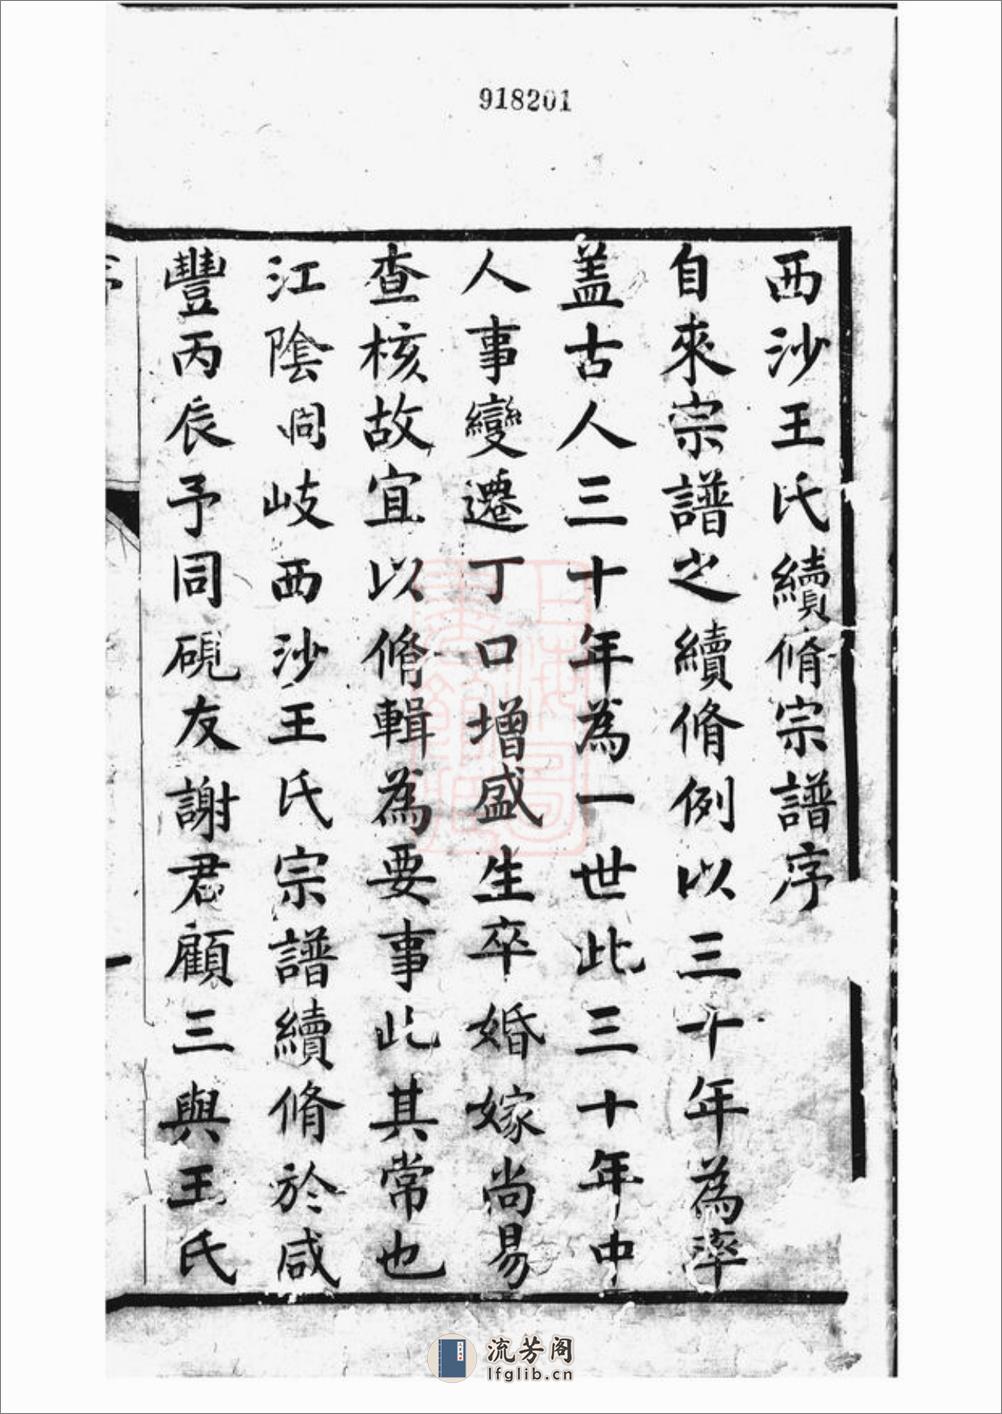 918201
西沙王氏續脩宗譜序
自來宗譜之續脩例以三十年為率
蓋古人三十年為一世此三十年中
人事變遷丁口增盛生卒婚嫁尚易
查核故宜以脩輯為要事此其常也
江陰同岐西沙王氏宗譜續脩於咸
豐丙辰予同硯友謝君顧三與王氏
流芳阁
lfglib.cn